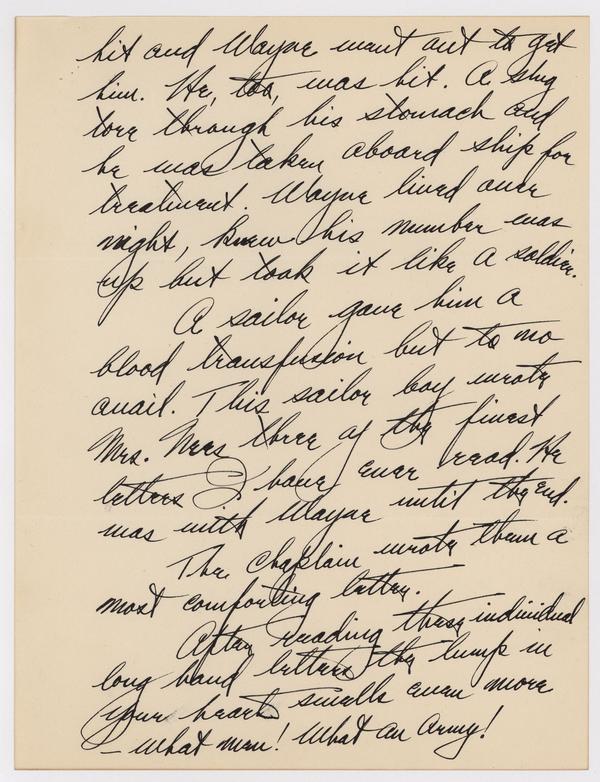 hit and Wayne went out to get
him. He, too, was hit. A slug
tore through his stomach and
he was taken aboard ship for
treatment. Wayne lived over
night, knew his number was
up but took it like a soldier.
A sailor gave him a
blood transfusion but to no
avail. This sailor boy wrote
Mrs. Nees three of the finest
letters I have ever read. He
was with Wayne until the end.
The chaplain wrote them a
most comforting letter.
After reading these individual
long hand letters the lump in
your heart swells even more
- what men! What an Army!